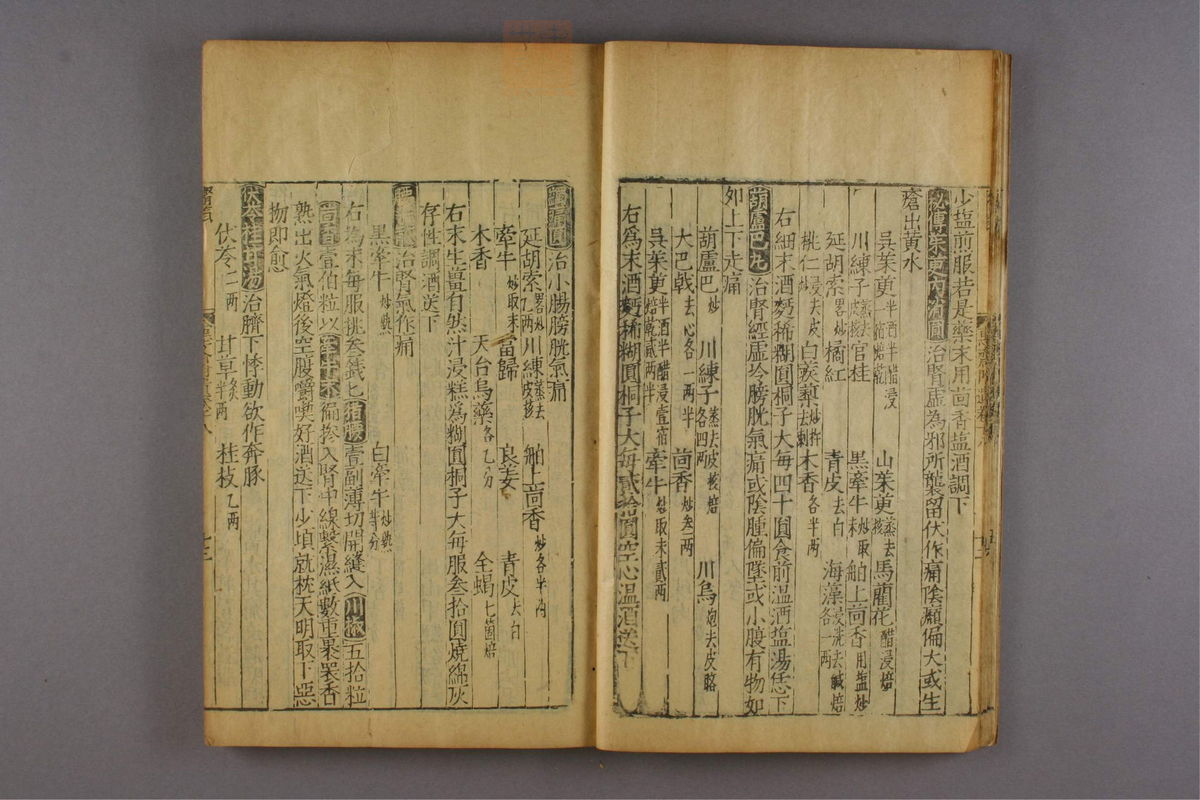 少塩煎服若是藥末用茴香塩酒調下
治腎虛為邪所襲留伏作痛陰㿗偏大或生
瘡出黃水
吳茱萸半酒半醋浸一宿焙乾 山茱萸蒸去核 馬藺花醋浸焙
川練子蒸去皮核 官桂 黑牽牛炒取末 舶上茴香用塩炒
延胡索畧炒 橘紅 青皮去白 海藻浸洗去鹹各一兩
桃仁浸去皮炒 白蒺藜炒杵去刺 木香各半兩
右細末酒麪稀糊圓桐子大每四十圓食前溫酒塩湯恁下
葫蘆巴丸 治腎經虛冷膀胱氣痛或陰腫偏墜或小腹有物如
夘上下走痛
葫蘆巴炒 川練子蒸去皮核焙各四兩 川烏炮去皮臍
大巴戟去心各一兩半 茴香炒叁兩
吳茱萸半酒半醋浸壹宿焙乾貳兩半 牽牛炒取末貳兩
右為末酒麪稀糊圓桐子大每貳拾圓空心温酒送下
治小腸膀胱氣痛
延胡索畧炒乙兩 川練蒸去皮核 舶上茴香炒各半兩
牽牛炒取末 當歸 良姜 青皮去白
木香 天台烏藥各乙分 全蝎七箇焙
右末生薑自然汁浸糕為糊圓桐子大每服叁拾圓燒綿灰
存性調酒送下
治腎氣作痛
黑牽牛炒熟 白牽牛炒熟等分
右為末每服挑叁錢匕猪腰壹副薄切開縫入川椒五拾粒
茴香壹伯粒以牽牛末徧摻入腎中線繫濕紙數重裹煨香
熟出火氣燈後空腹嚼喫好酒送下少頃就枕天明取下惡
物即愈
茯苓桂甘湯 治臍下悸動欲作奔豚
伏苓二兩 甘草炙半兩 桂枝乙兩